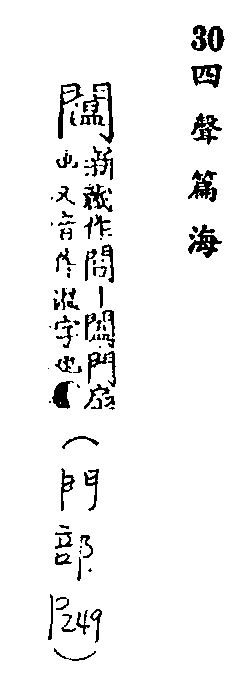 30 四聲篇海
新藏作丨門扇
也又音作字也
（門部 P249）